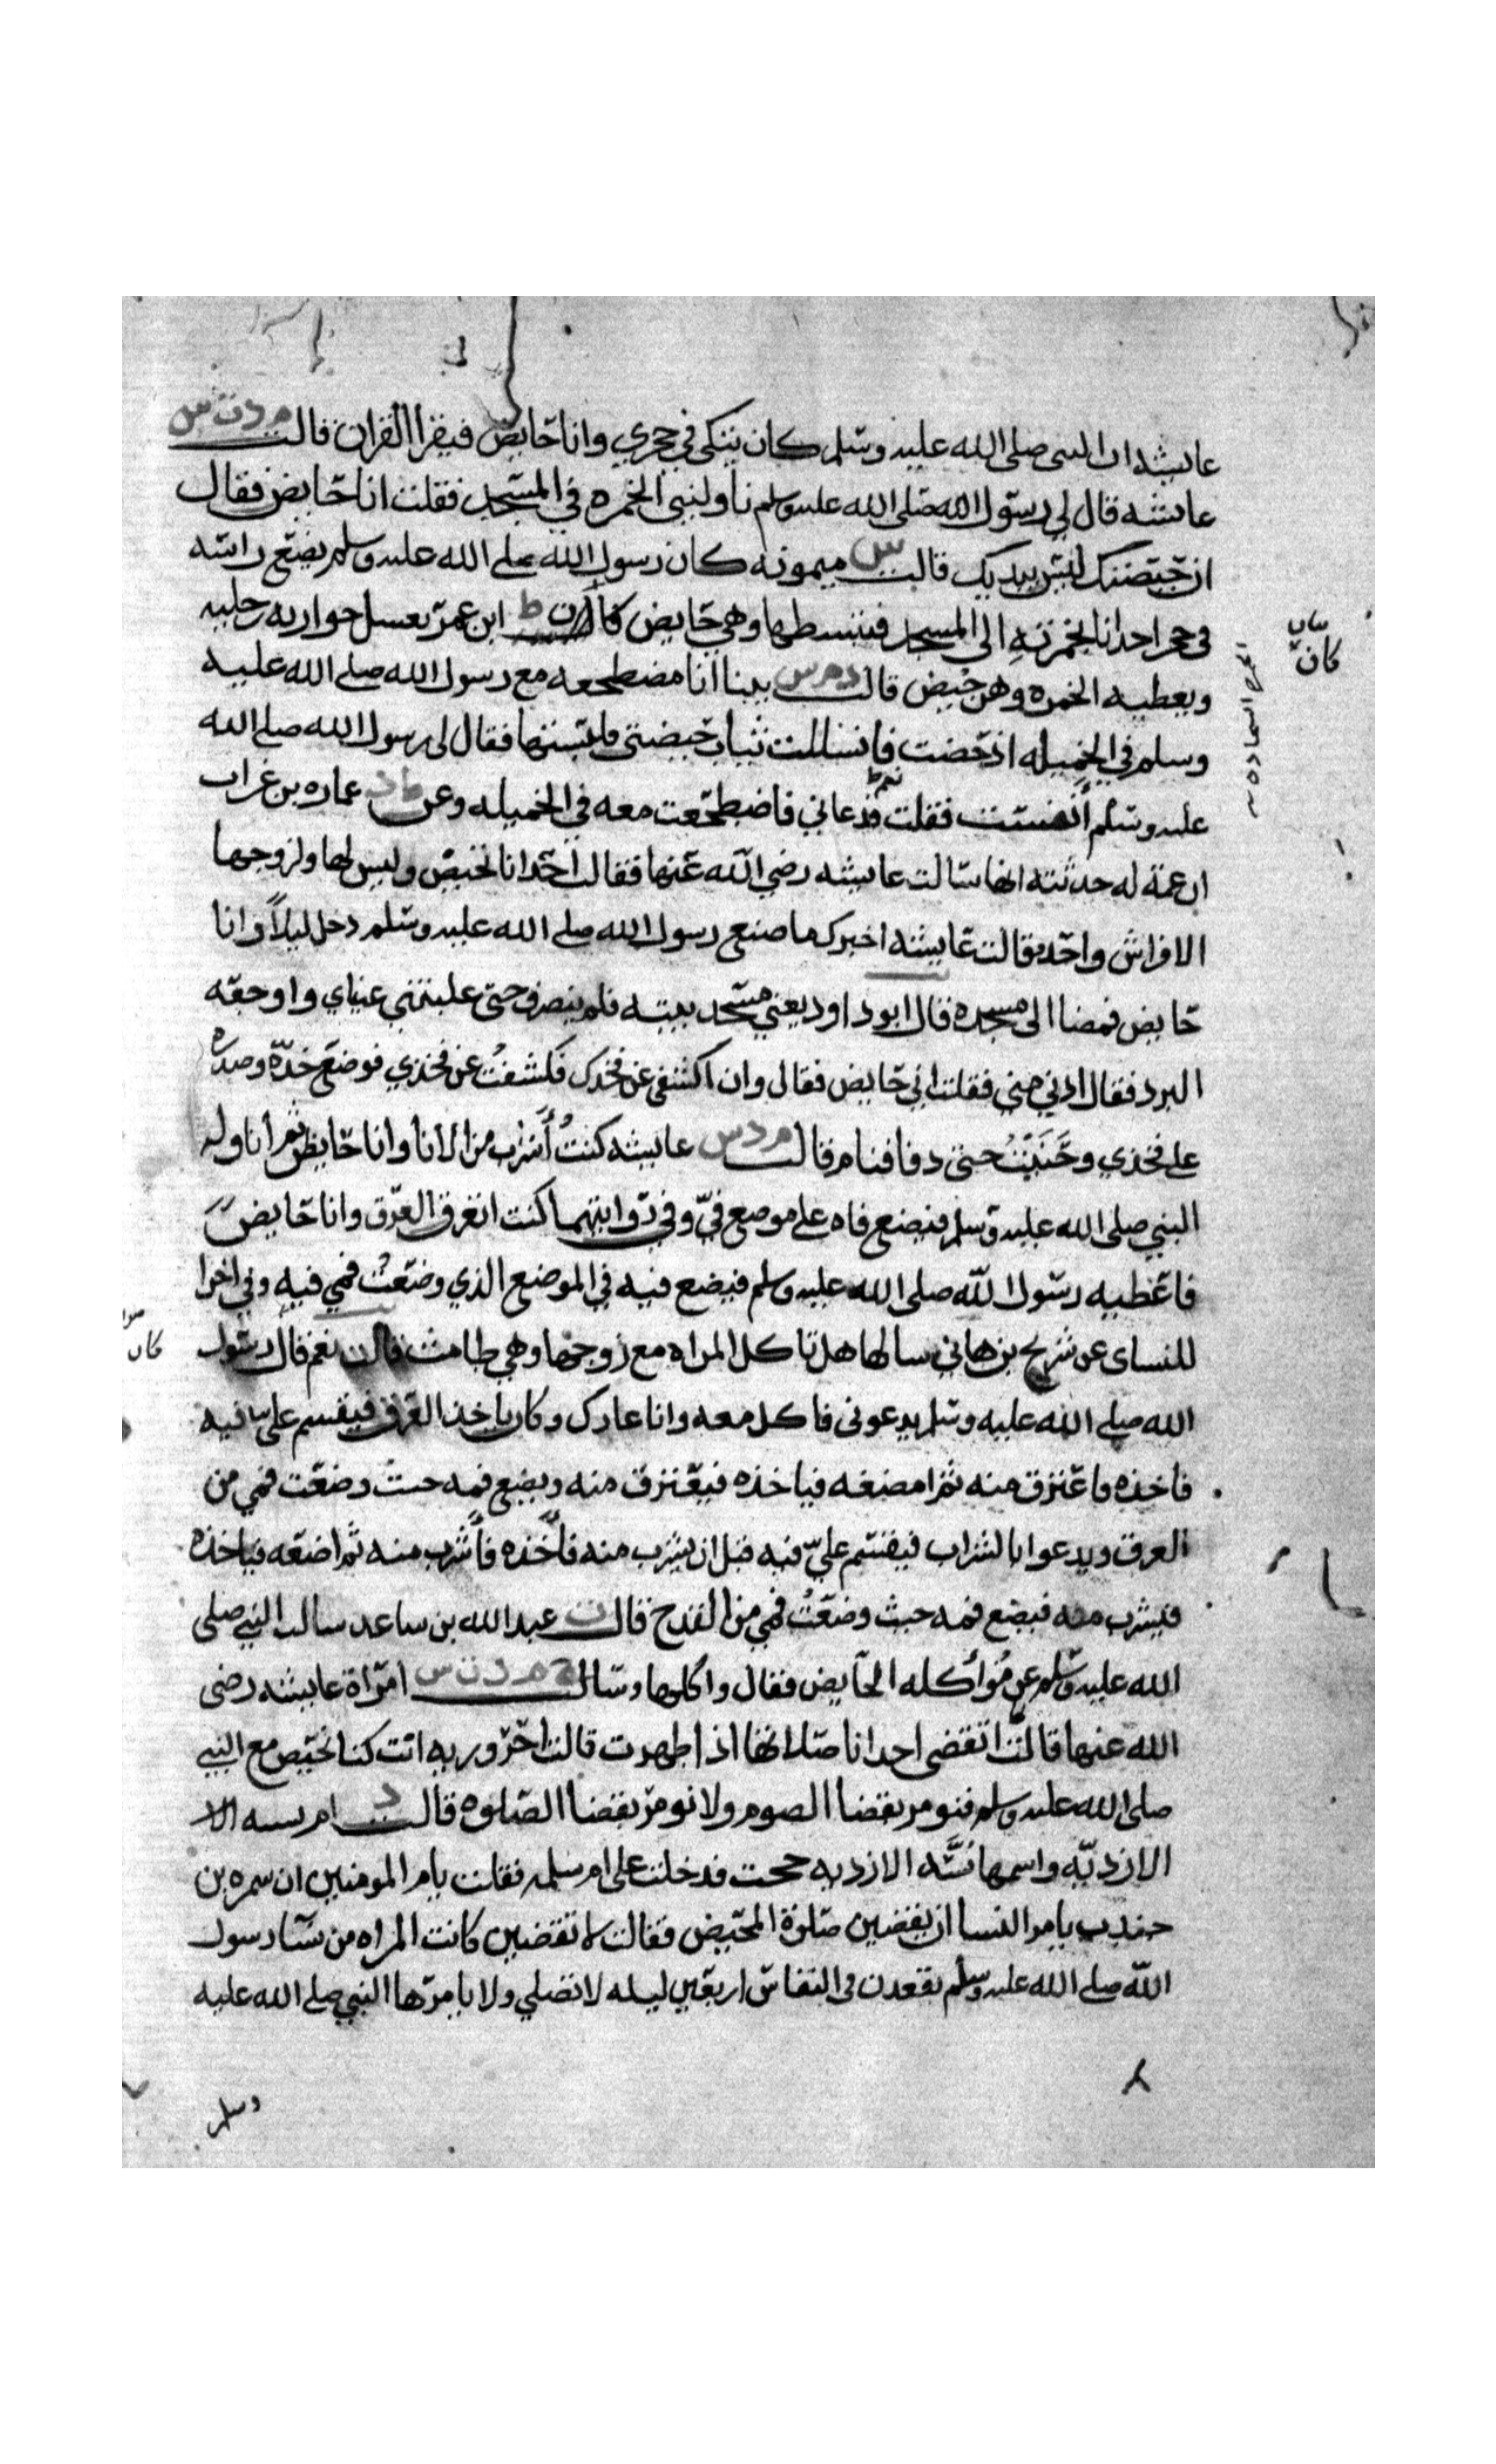 عايشه ان النبى صلى الله عليه وسلم كان يتكى في حجري وانا حايض فيقرا القران قالت م د ت س
عايشه قال لي رسول الله صلى الله عليه وسلم ناوليني الخمره في المسجد فقلت انا حايض فقال
ان حيضتك ليس بيدك قالت س ميمونه كان رسول الله صلى الله عليه وسلم يضع راسه
فى حجر احدانا الخمرته الى المسجد فتبسطها وهي حايض كان ط ابن عمر يغسل جواريه رجليه
ويعطيه الخمره وهن حيض قالت د م س بينا انا مضطجعه مع رسول الله صلى الله عليه
وسلم في الخميله اذ حضت فانسللت ثياب حيضتى فلبستها فقال لى رسول الله صلى الله
عليه وسلم أنفست فقلت نعم فدعاني فاضطجعت معه في الخميله وعن د عماره بن غراب
ان عمة له حدثته انها سالت عايشه رضي الله عنها فقالت احدانا تحيض وليس لها ولزوجها
الا فراش واحد فقالت عايشه اخبرك ما صنع رسول الله صلى الله عليه وسلم دخل ليلاً وانا
حايض فمضا الى مسجده قال ابو داود يعني مسجد بيته فلم ينصرف حتى غلبتني عيناي واوجعه
البرد فقال ادني مني فقلت اني حايض فقال وان اكشفى عن فخدك فكشفتُ عن فخذي فوضع خدّه وصدره
على فخذي وحَنَيْتُ حتى دفا فنام قالت م د س عايشه كنتُ أشرب من الانا وانا حايض ثم اناوله
النبي صلى الله عليه وسلم فيضع فاه على موضع فيّ وفي روايتهما كنت اتعرق العرق وانا حايض
فاعطيه رسول الله صلى الله عليه وسلم فيضع فيه في الموضع الذي وضعتُ فمي فيه وفي اخرا
للنساى عن شريح بن هاني سالها هل تاكل المراه مع زوجها وهي طامث قالت نعم قال رسول
الله صلى الله عليه وسلم يدعونى فاكل معه وانا عارك وكان ياخذ العرق فيقسم علىّ فيه
فاخذه فاعترق منه ثم اضعه فياخذه فيعترق منه ويضع فمه حيث وضعت فمي من
العرق ويدعوا بالشراب فيقسم عليّ فيه قبل ان يشرب منه فأخذه فأشرب منه ثم اضعه فياخذه
فيشرب منه فيضع فمه حيث وضعتُ فمي من القدح قال ت عبد الله بن ساعد سالت النبي صلى
الله عليه وسلم عن مُوأكله الحايض فقال واكلها وسالت خ م د ت س امرأة عايشه رضى
الله عنها قالت اتقضى احدانا صلاتها اذا طهرت قالت احروريه انت كنا نحيض مع النبي
صلى الله عليه وسلم فنومر بقضا الصوم ولا نومر بقضا الصلوه قالت د ام بسه الا
الازديّه واسمها مُسَّه الازديه حججت فدخلت على ام سلمه فقلت يام المومنين ان سمره بن
جندب يامر النسا ان يقضين صلوة المحيض فقالت لا تقضين كانت المراه من نسا رسول
الله صلى الله عليه وسلم تقعد فى النفاس اربعين ليله لا تصلي ولا يامرها النبي صلى الله عليه
وسلم
بيان
كان
كان